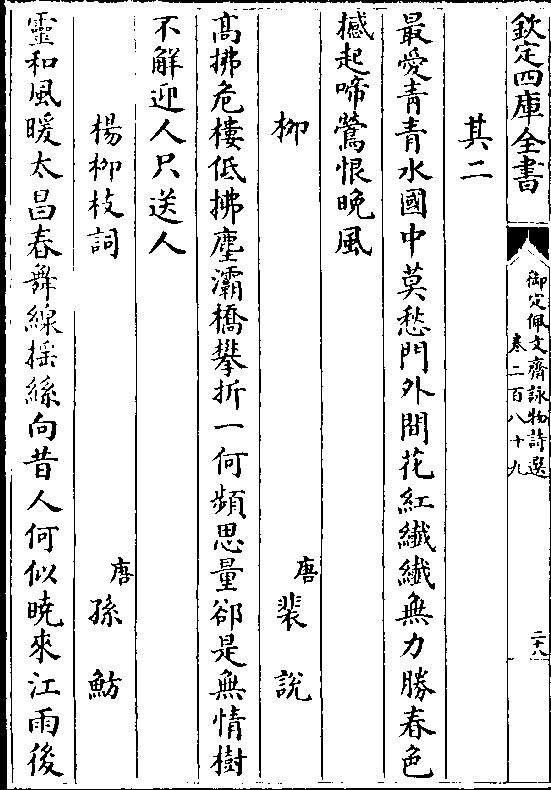 欽定四庫全書
御定佩文齋詠物詩選
卷二百八十九
二十八
其二
最愛青青水國中莫愁門外間花紅纎纎無力勝春色
撼起啼鶯恨晚風
柳
唐
裴說
高拂危樓低拂塵灞橋攀折一何頻思量卻是無情樹
不解迎人只送人
楊柳枝詞
唐
孫魴
靈和風暖太昌春舞線揺絲向昔人何似曉來江雨後